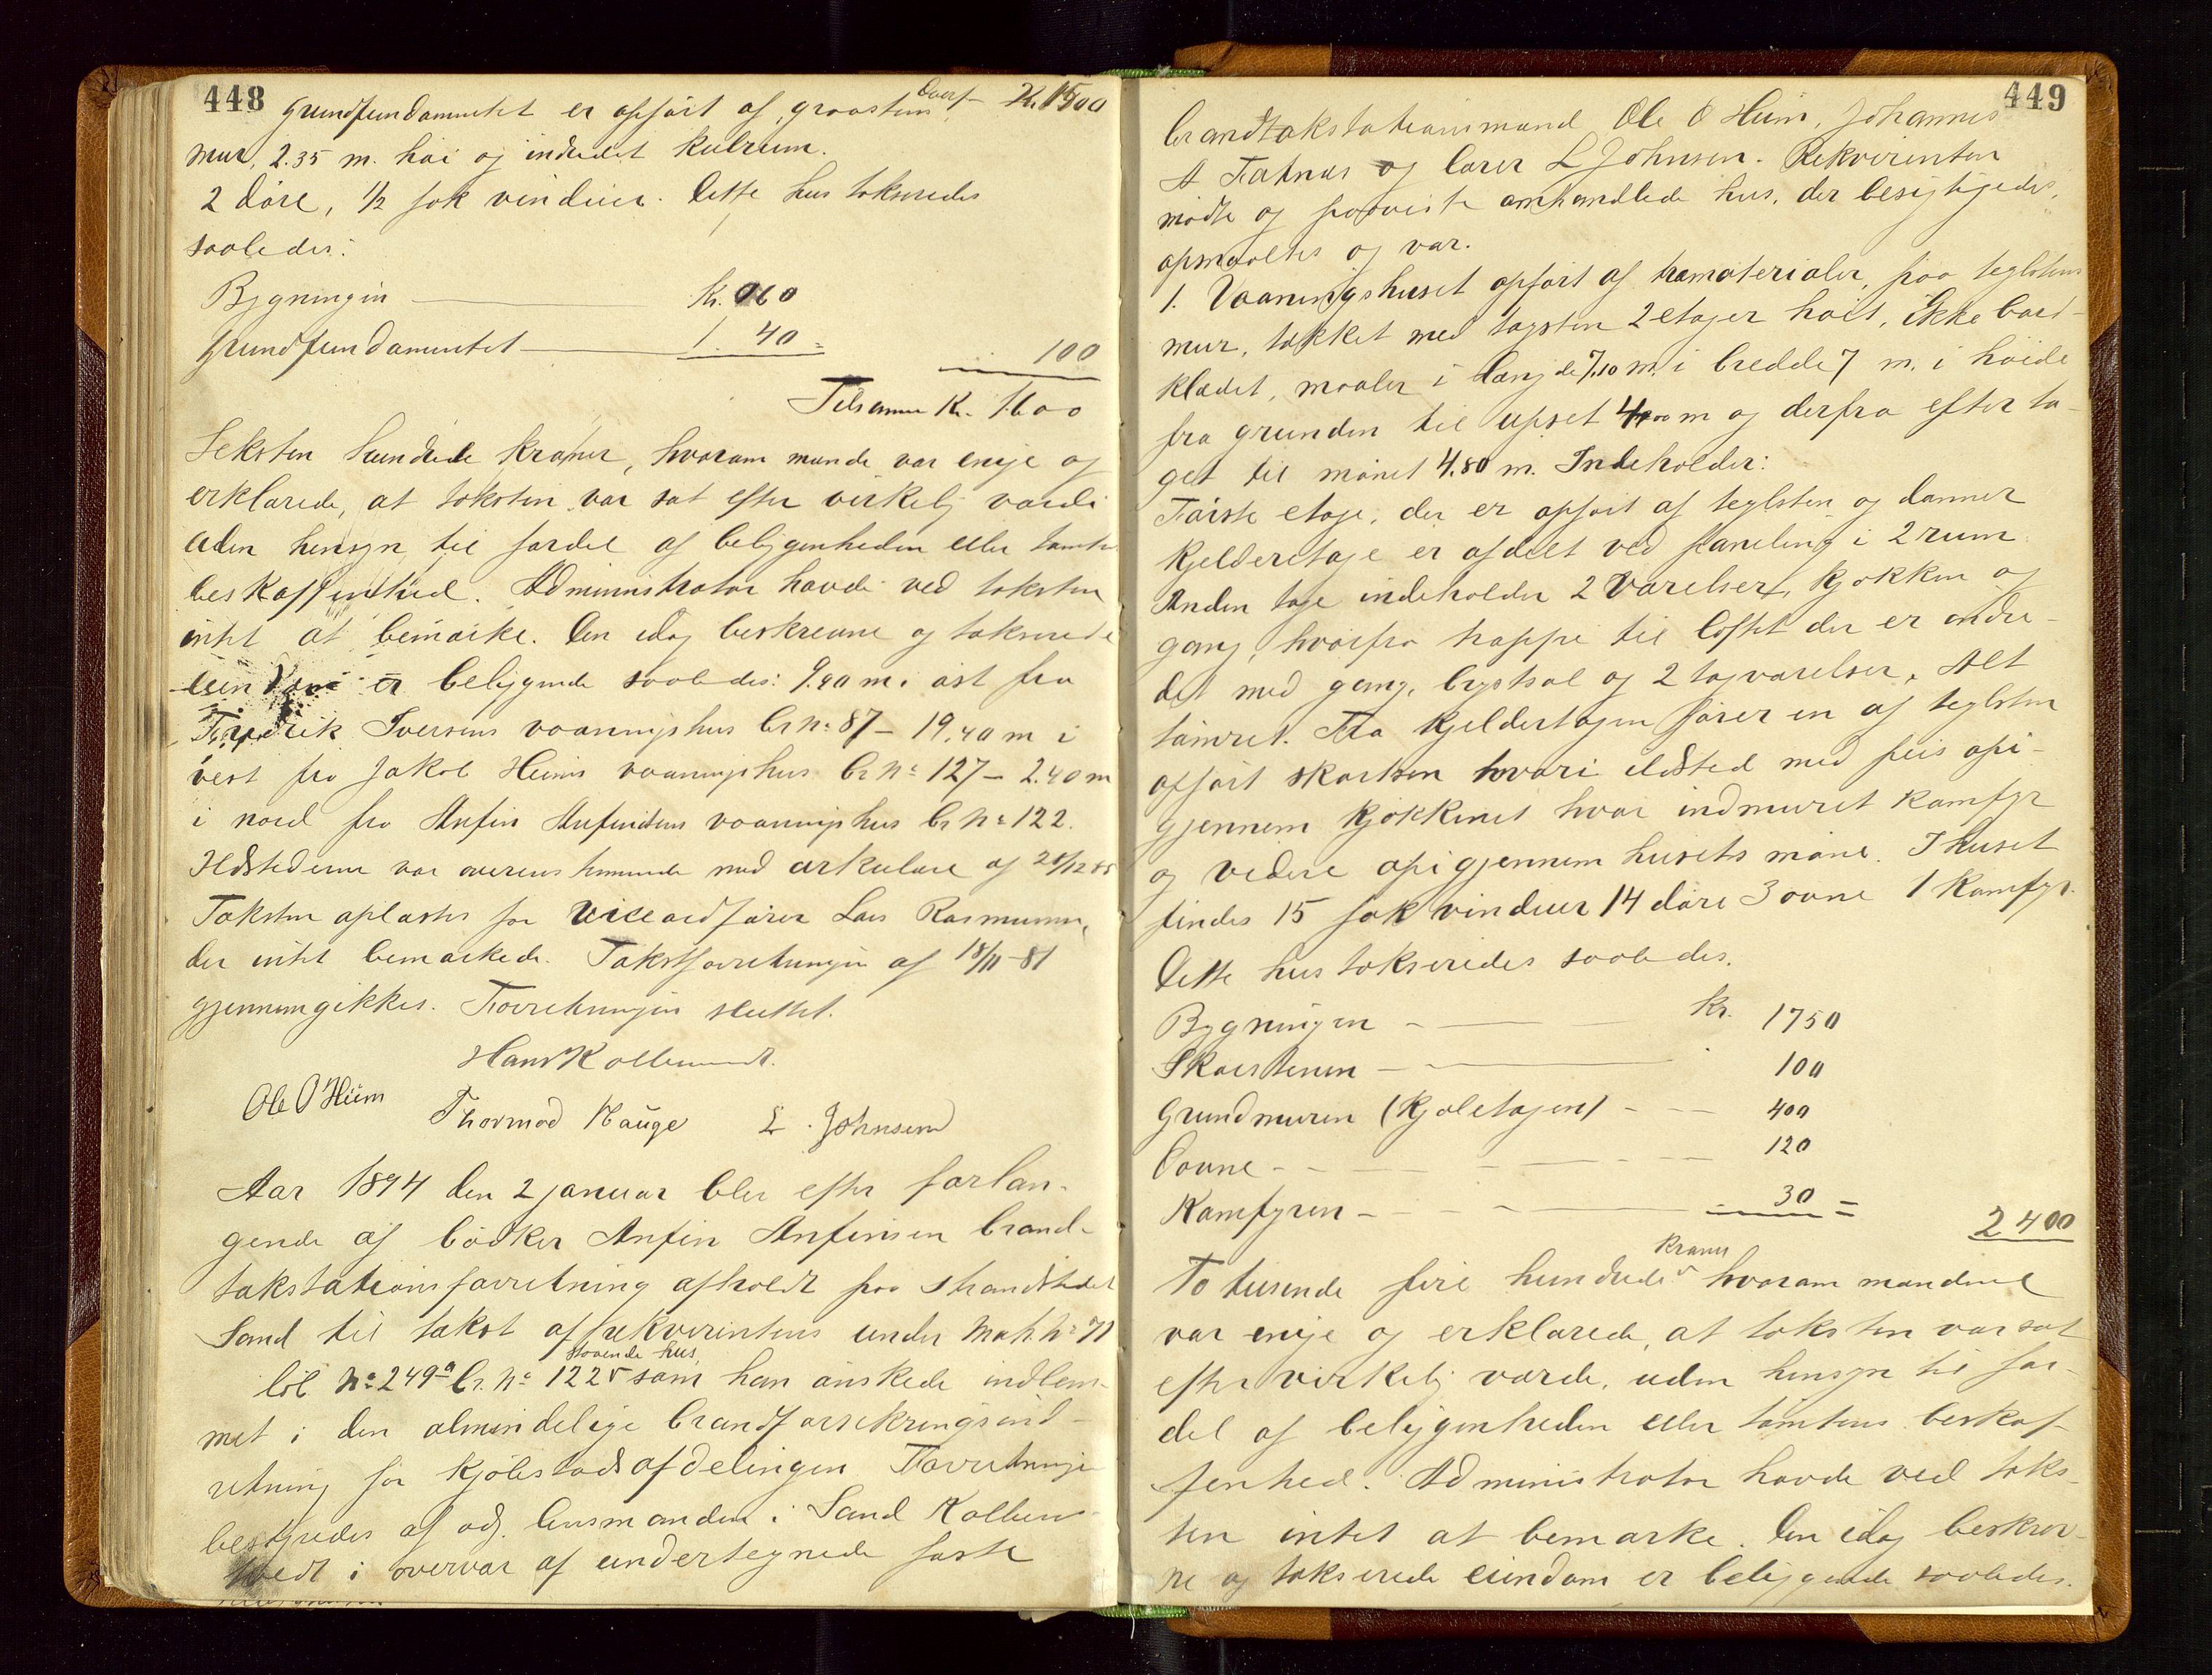 448
Overf. Kr. 1500
Grundfundamentet er opført af graastens
mur, 2.35 m. høi og indredet kulrum.
2 døre, 1/2 fak vinduer. Dette hus takseredes
saaledes:
Bygningen — Kr. 060
Grundfundamentet — 40 =
100
Tilsammen Kr. 1600
Seksten hundrede kroner, hvorom mænde var enige og
erklærede, at taksten var sat efter virkelig værdi
uden hensyn til fordel af beliggenheden eller tomtens
beskaffenhed. Administrator havde ved taksten
intet at bemærke. Den idag beskrevne og takserede
eiendom er beliggende saaledes: 9.90 m. øst fra
Fredrik Iversens vaaningshus br. no 87 – 19.40 m i
vest fra Jakob Heims vaaningshus br. no 127 – 2.40 m
i nord fra Anfin Anfindsens vaaningshus br. no 122.
Ildstederne var overensstemmende med cirkulære af 28/12 85
Taksten oplæstes for viceordfører Lars Rasmussen,
der intet bemærkede. Takstforretningen af 18/11-81
gjennemgikkes. Forretningen sluttet.
Hans Kolbenstvedt.
Ole O Heim Thormod Hauge L. Johnsen
Aar 1894 den 2 januar blev efter forlan-
gende af bødker Anfin Anfinsen brand-
takstationsforretning afholdt paa strandstedet
Sand til takst af rekvirentens under Matr. no 71
staaende hus
löb. no 249a br. no 122 som han ønskede indlem-
met i den almindelige brandforsikringsind-
retning for kjøbstadsafdelingen. Forretningen
bestyredes af adj. lensmanden i Sand Kolbens-
tvedt i overvær af undertegnede faste
449
brandtakstationsmænd Ole O Heim, Johannes
A Fatnæs og lærer L Johnsen. Rekvirenten
mødte og paaviste omhandlede hus, der besigtigedes,
opmaaltes og var.
1. Vaaningshuset opført af træmaterialer, paa teglstens
mur, tækket med tagsten 2 etager høit, ikke bord-
klædet, maaler i længde 7.10 m. i bredde 7 m. i høide
fra grunden til upset 4.00 m og derfra efter ta-
get til mønet 4.80 m. Indeholder:
Første etage, der er opført af teglsten og danner
Kjelderetage er afdelt ved paneling i 2 rum.
Anden tage indeholder 2 værelser, kjøkken og
gang, hvorfra trappe til loftet der er indre-
det med gang, brystsal og 2 tagværelser. Alt
tømret. Fra Kjeldertagen fører en af teglsten
opført skorsten hvori ildsted med peis op i-
gjennem kjøkkenet hvor indmuret kamfyr
og videre op igjennem husets møne. I huset
findes 15 fak vinduer 14 døre 3 ovne 1 kamfyr.
Dette hus takseredes saaledes.
Bygningen — Kr. 1750
Skorstenen — 100
Grundmuren (Kjeletagen) — 400
Ovnne — 120
Kamfyren — 30 =
2400
kroner
To tusende fire hundrede hvorom mændene
var enige og erklærede, at taksten var sat
efter virkelig værde, uden hensyn til for-
del af beliggenheden eller tomtens beskaf-
fenhed. Administrator havde ved taks-
ten intet at bemærke. Den idag beskrev-
ne og takserede eiendom er beliggende saaledes.